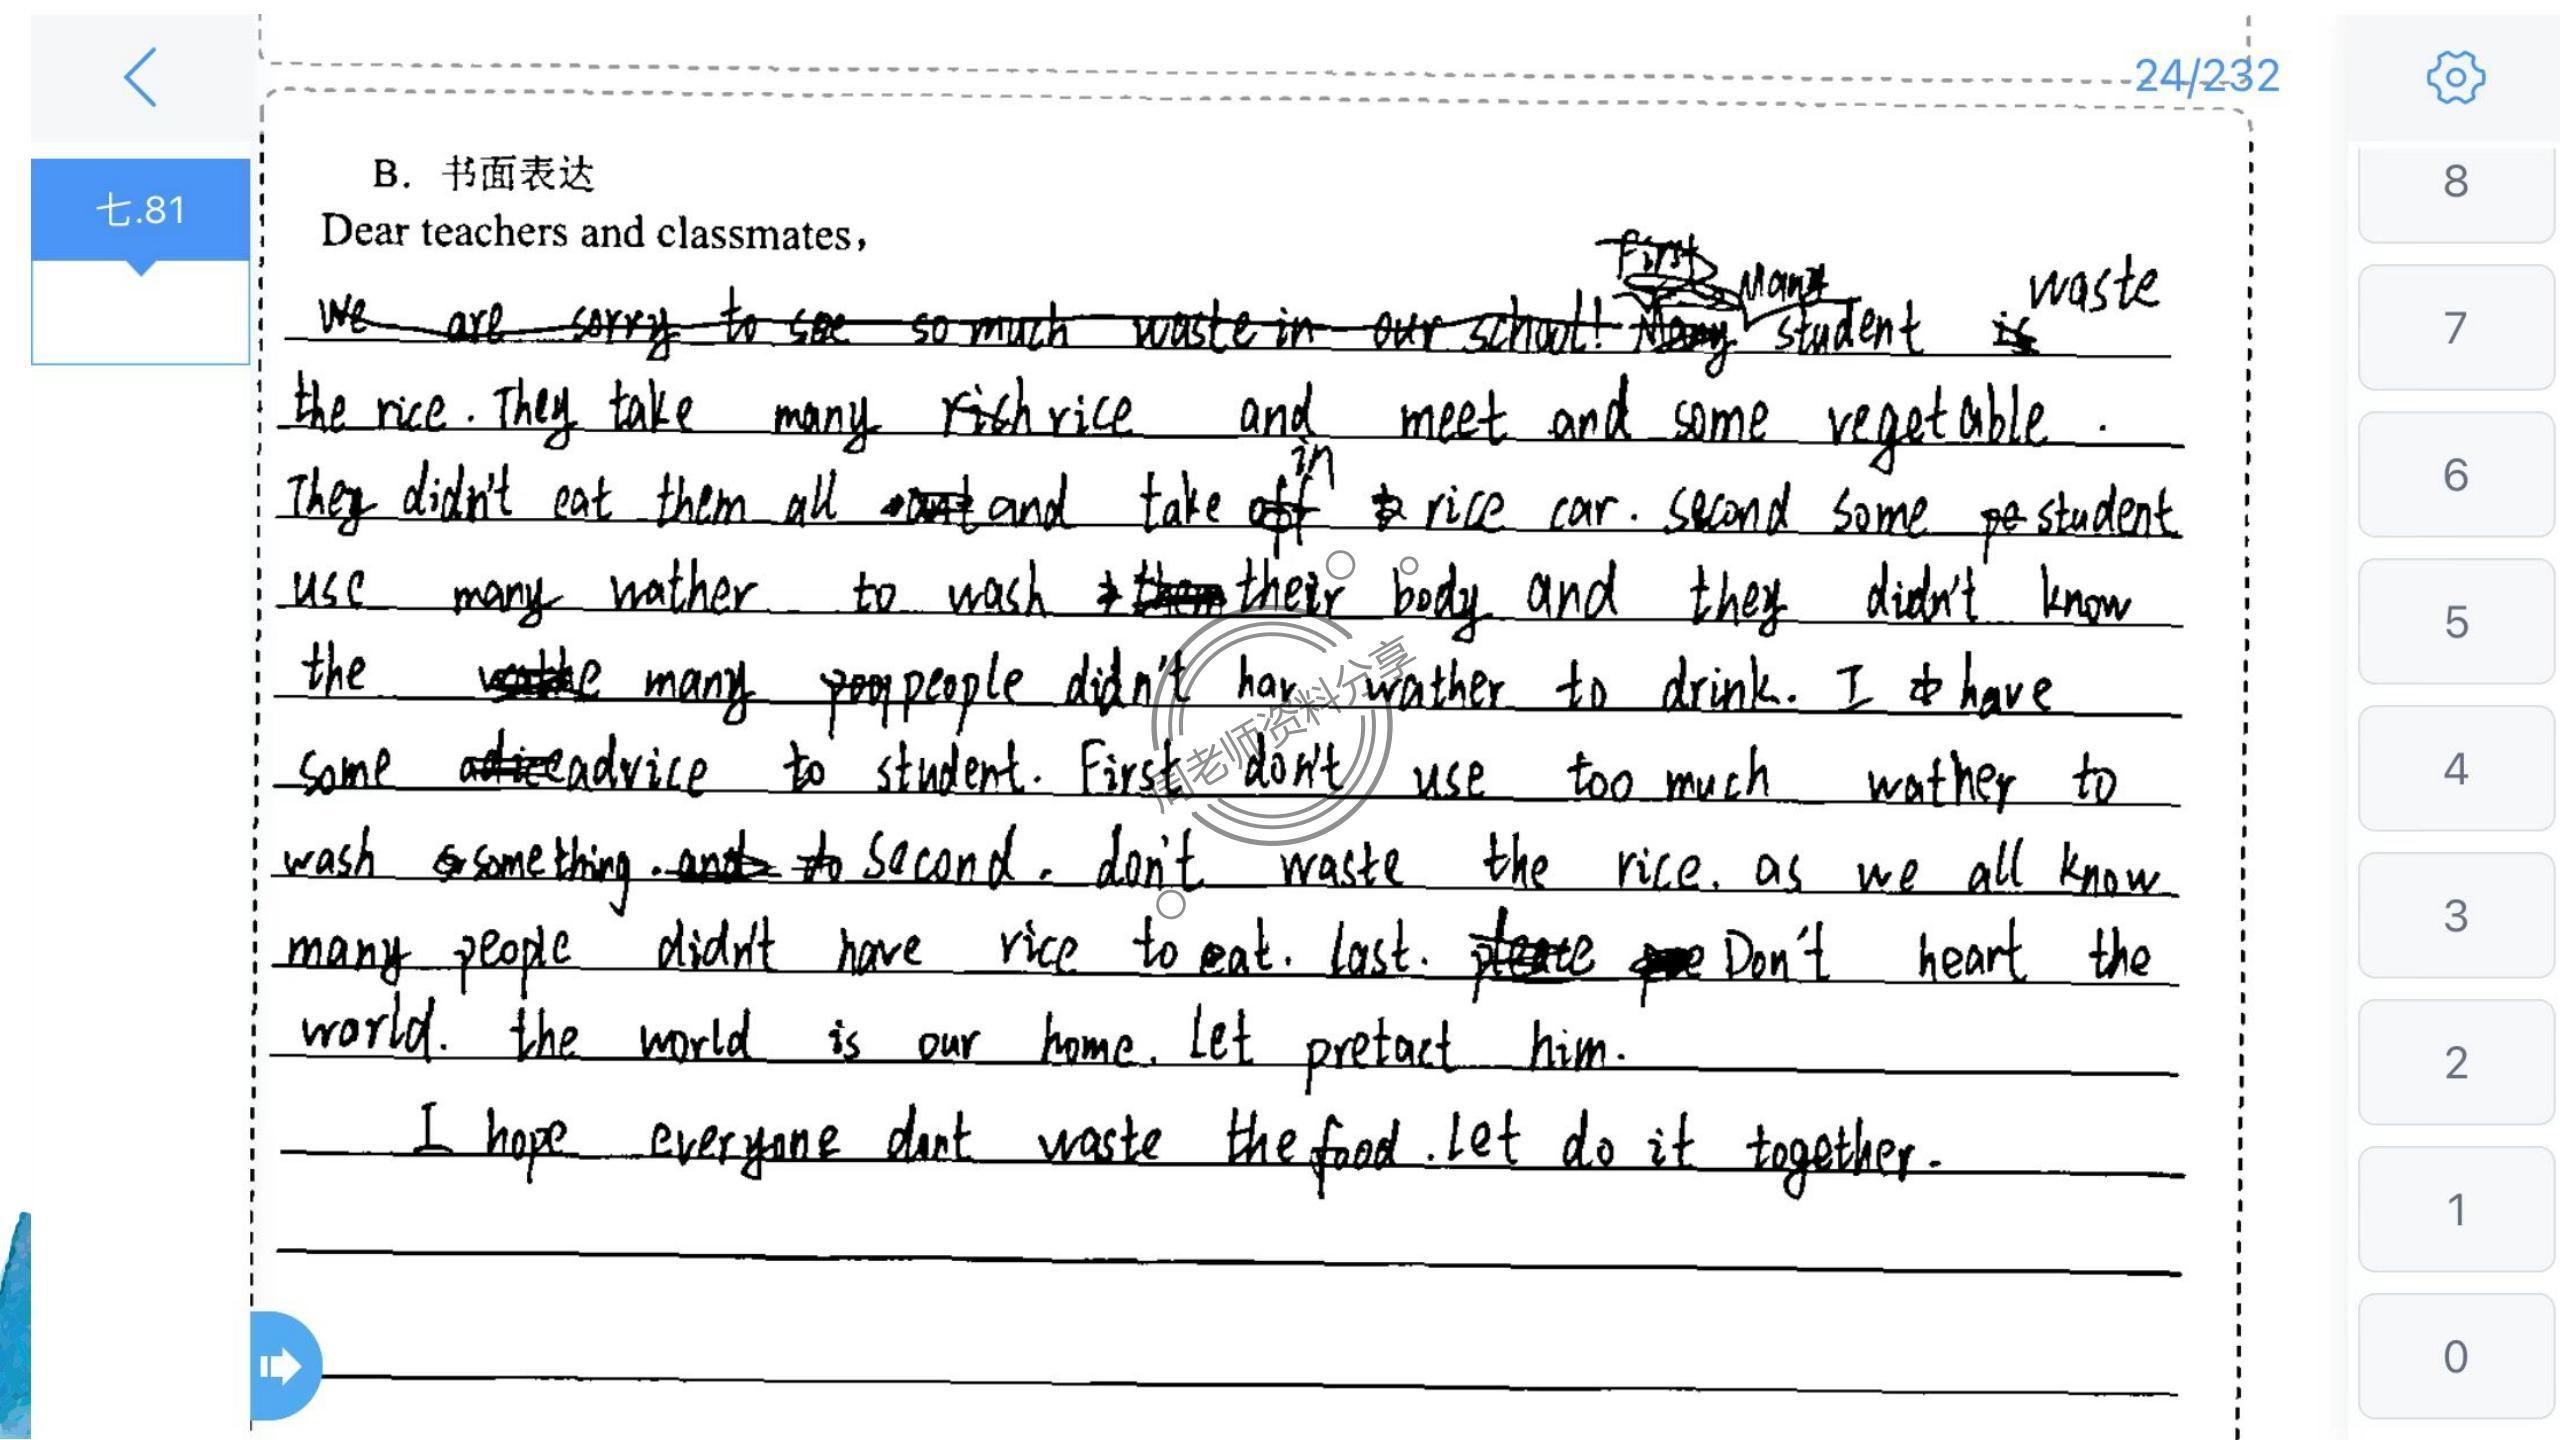 24/232
七.81
B. 书面表达
Dear teachers and classmates,
First
Many
waste
We are sorry to see so much waste in our school! Many student is
the rice. They take many rich rice and meet and some vegetable.
in
They didn't eat them all and and take off rice car. Second some pe student
use many wather to wash them their body and they didn't know
the many people didn't hav wather to drink. I have
some adice advice to student. First don't use too much wather to
wash something. and to Second. don't waste the rice. as we all know
many people didn't have rice to eat. Last. please Don't heart the
world. the world is our home. Let pretact him.
I hope everyone dont waste the food. Let do it together.
周老师资料分享
8
7
6
5
4
3
2
1
0